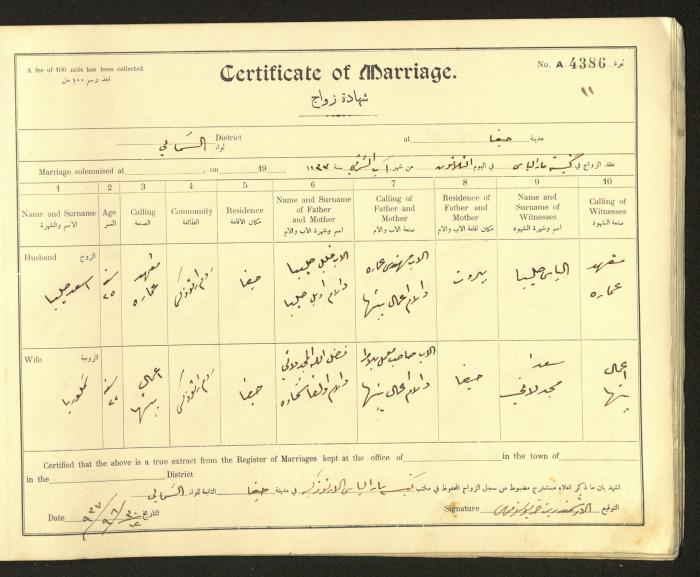 A fee of 100 mils has been collected.
اخذ رسم ١٠٠ مل
Certificate of Marriage.
شهادة زواج
No. A 4386 نمرة
١١
District لواء الشمالي
at مدينة حيفا
Marriage solemnised at , on 19 سنة ١٩٣٧ من شهر آب الشرقي في اليوم الثلاثون في كنيسة مار الياس عقد الزواج في
1 2 3 4 5 6 7 8 9 10
Name and Surname
الاسم والشهرة
Age
العمر
Calling
الصنعة
Community
الطائفة
Residence
مكان الاقامة
Name and Surname of Father and Mother
اسم وشهرة الاب والام
Calling of Father and Mother
صنعة الاب والام
Residence of Father and Mother
مكان اقامة الاب والام
Name and Surname of Witnesses
اسم وشهرة الشهود
Calling of Witnesses
صنعة الشهود
Husband الزوج
اسعد حلبيا
سنة ٢٥
متعهد عماره
روم ارثوذكس
حيفا
الاب خليل حلبيا
والام
الاب مهندس عماره
والام اعمال بيتها
بيروت
الياس حلبيا
متعهد عماره
Wife الزوجة
سنة
اعمال بيتها
روم ارثوذكس
حيفا
فضل الله المجدلاني
والام اولغا شحاده
الاب صاحب معمل بلاط
والام اعمال بيتها
حيفا
سعدا مجدلاني
اعمال بيتها
Certified that the above is a true extract from the Register of Marriages kept at the office of in the town of
in the District
اشهد بان ما ذكر اعلاه مستخرج مضبوط من سجل الزواج المحفوظ في مكتب كنيسة مار الياس الارثوذكس في مدينة حيفا التابعة للواء الشمالي
Date التاريخ
Signature التوقيع